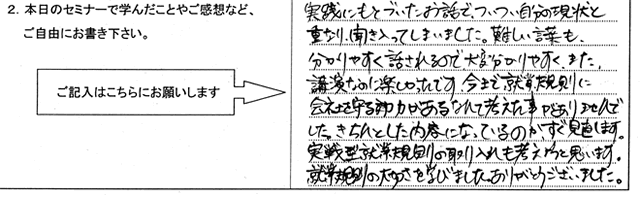 2. 本日のセミナーで学んだことやご感想など、
ご自由にお書き下さい。
ご記入はこちらにお願いします
実践にもとづいたお話で、ついつい自分の現状と
重なり、聞き入ってしまいました。難しい言葉も、
分かりやすく話されるので大変分かりやすく、また、
講演なのに楽しかったです。今まで就業規則に
会社を守る効力があるなんて考えた事がありませんで
した。きちんとした内容になっているのかすぐ見直します。
実戦型就業規則の取り入れも考えようと思います。
就業規則の大切さを学びました。ありがとうございました。